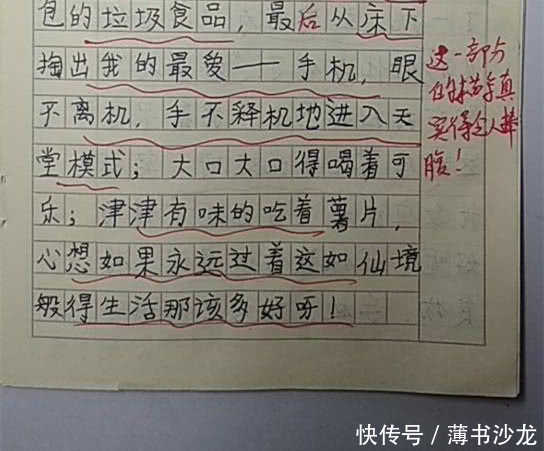 包的垃圾食品，最后从床下
掏出我的最爱——手机，眼
不离机，手不释机地进入天
堂模式；大口大口得喝着可
乐；津津有味的吃着薯片，
心想如果永远过着这如仙境
般得生活那该多好呀！
这一部分
的描写真
实得令人捧
腹！
快传号／薄书沙龙